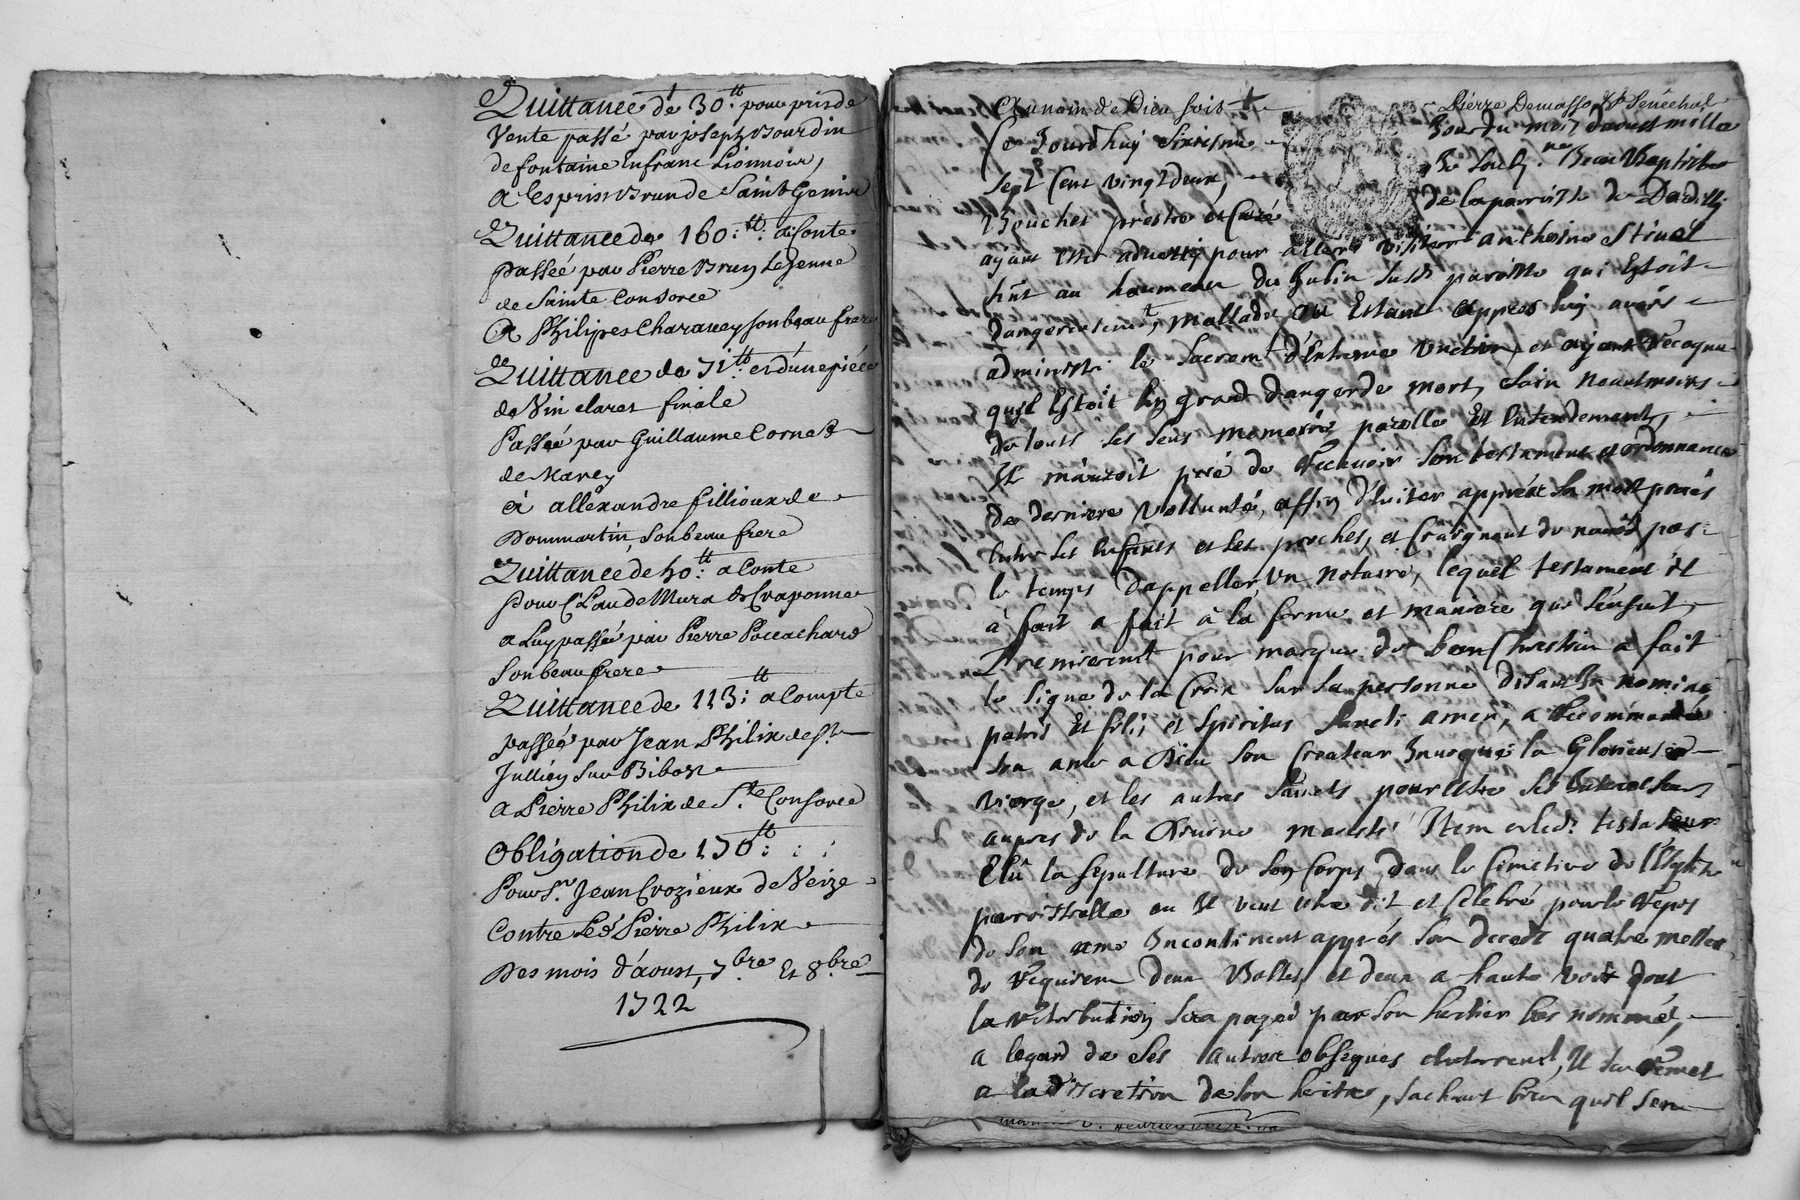 Quittance de 30.tt pour pris de
Vente passé par joseph Bourdin
de fontaine En franc Lionnois,
a Esprist Brun de Saint Genis
Quittance de 160:tt: a Conte
passée par Pierre Brun Le Jenne
de Sainte Consorce
A Philipes Charavey son beau frere
Quittance de 71.tt et d'une piéce
de Vin claret finale
Passée par Guillaume Cornet
de Marcy
à allexandre fillioux de
Dommartin, son beau frere
Quittance de 50:tt a Conte
Pour Claude Mura de Craponne
a Luy passée par Pierre Poccachard
Son beau frere
Quittance de 113:tt a Compte
passée par Jean Philix de St
Jullien Sur Bibost
A Pierre Philix de Ste Consorce
Obligation de 136:tt : :
Pour Sr. Jean Crozieux de Veize
Contre Led. Pierre Philix
Des mois d'áoust, 7.bre Et 8.bre
1722
Au nom de Dieu soit + Pierre Demasso Sénéchal
Ce Jourdhuy sixiesme Jour du mois daoust mille
sept Cent vingtdeux, Jean Baptiste
Bouchet prestre et Curé de la parroisse de Dardilly
ayant esté adverty pour allerer visiter anthoine Stinat
au haumeau du Jubin susd. paroisse qui Estoit
dangereusemt, mallade, ou Estant appres luy avoir
administré le Sacremt d'Extreme onction, et ayant recognu
quil Estoit En grand danger de mort, Sain neantmoins
de touts ses sens memoire parolle Et Entendement,
Il m'auroit prié de recevoir son testament et ordonnance
de derniere vollunté, affin d'éviter apprés sa mort procés
Entre ses Enfants et ses proches, et Craignant de navoir pas
le temps D'appeller un notaire, lequel testament il
à fait a fait à la forme et maniere que s'ensuit,
Premieremt pour marque de bon Chrestien a fait
le signe de la Croix sur sa personne disant In nominé
patris Et filii et spiritus sancti amen, a recommandé
son ame a Dieu son Createur Invoqué la Glorieuse
vierge, et les autres saincts, pour estre ses Intercesseurs
aupres de la divine majesté Item Led. testateur
Elû la sepulture de son Corps, dans le Cimetiere de l'Eglise
parroissialle ou Il veut Estre dit et Célebré pour le repos
de son ame Incontinent apprés son deceds quatre messes
de requiem deux Basses, et deux a haute voix dont
la retribution sera payeé par son heritier bas nommé,
a legard de ses autres obseques enterremt, Il sen remet
a la discretion de son heritier, sachant bien quil sen